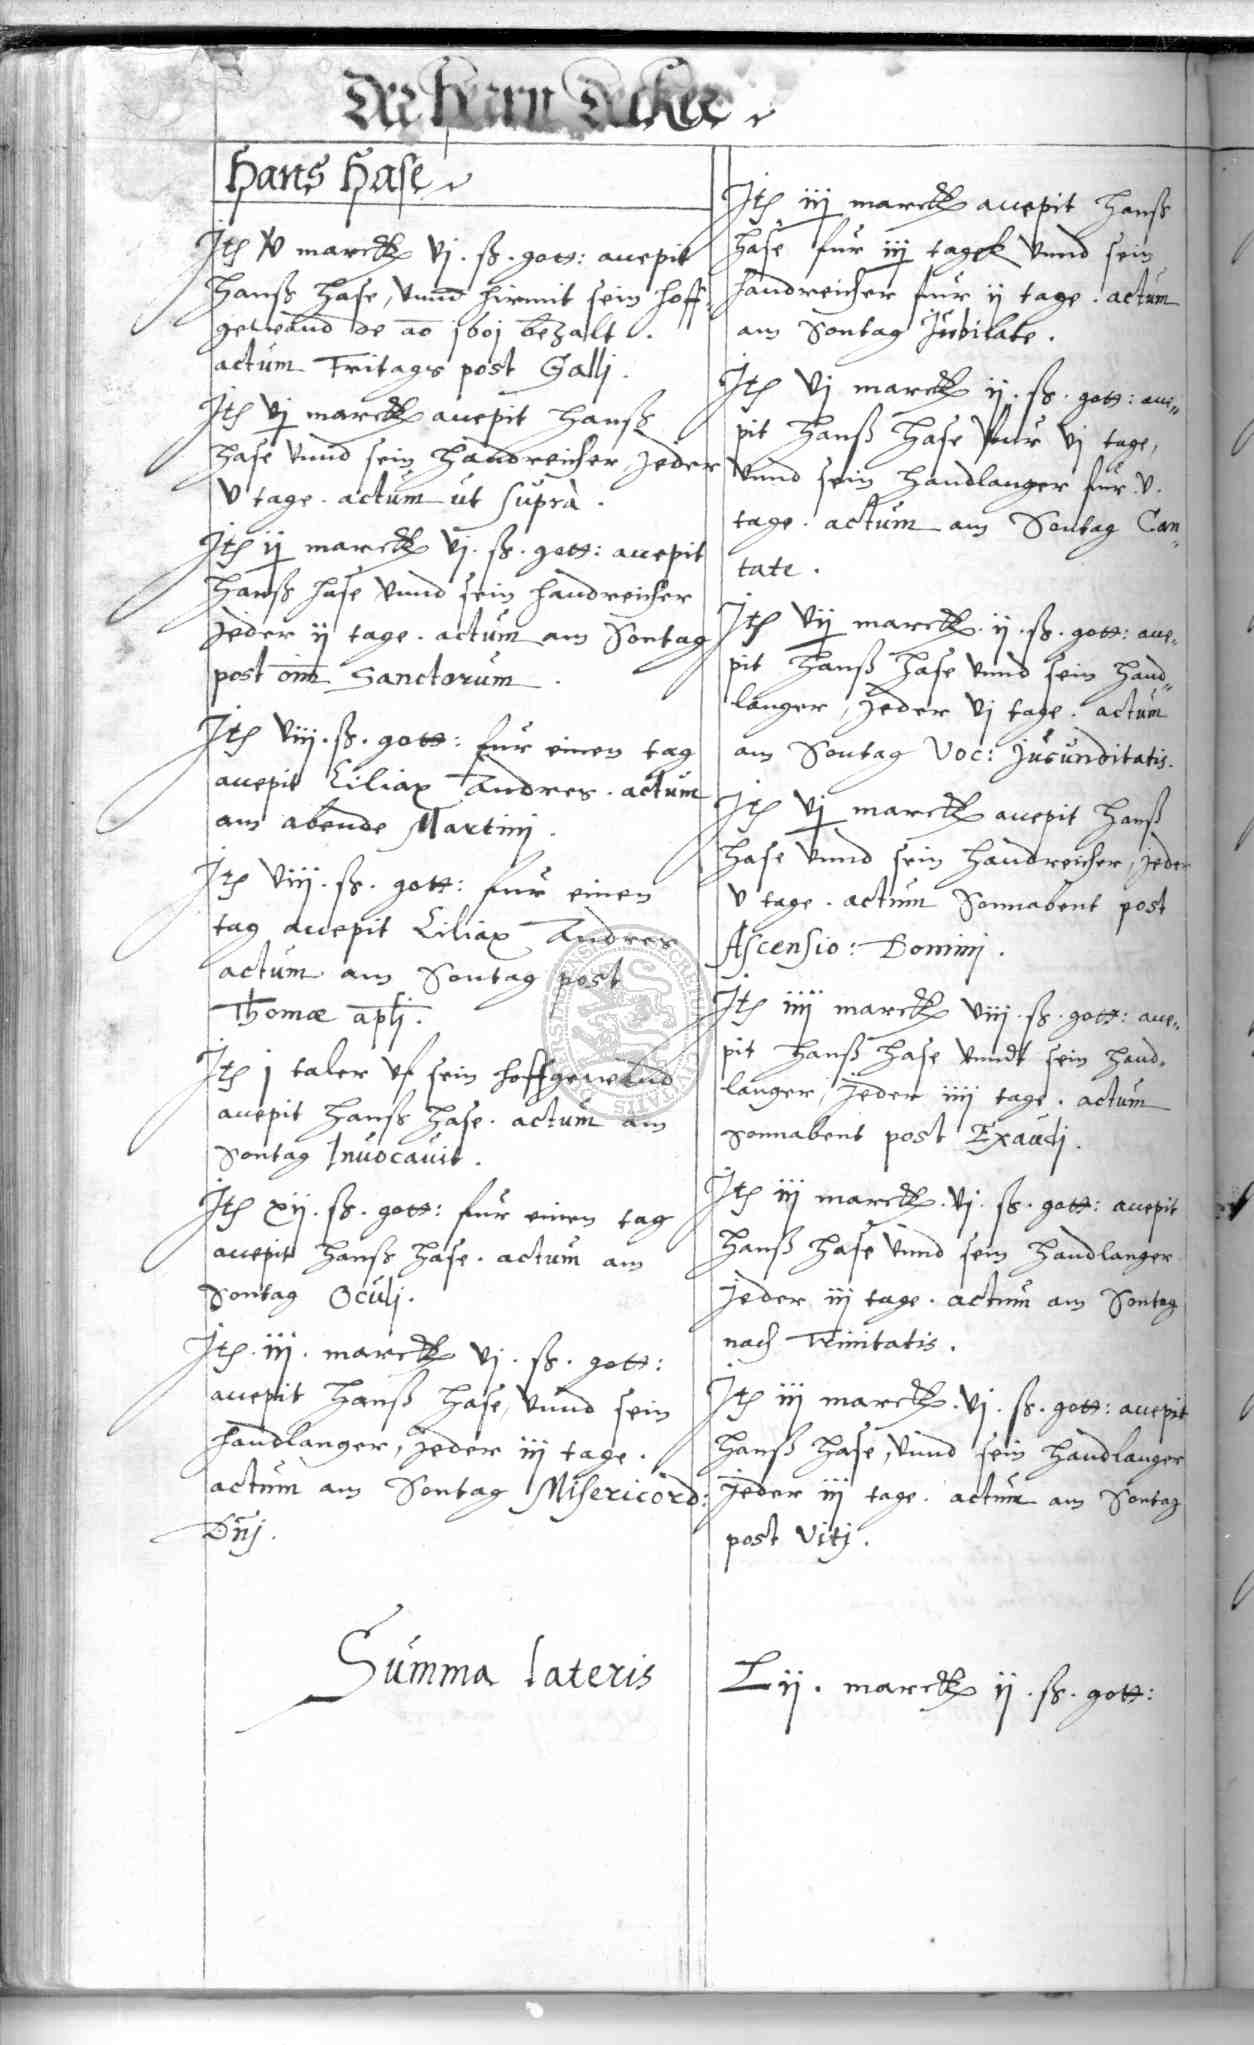 Der herrn Decker
Hans Hase
Ith v marck vj . ß . gott: accepit
Hanß Hase, vnnd hirmit sein hoff
gewand de ao 1601 bezalt .
actum Fritags post Galli .
Ith vj marck accepit Hanß
Hase vnnd sein handreicher jeder
v tage . actum ut supra .
Ith ij marck vj . ß . gott: accepit
Hanß Hase vnnd sein handreicher
jeder ij tage . actum am Sontag
post oim Sanctorum .
Ith viij . ß . gott: fur einen tag
accepit Ciliax Andres . actum
am abende Martinj .
Ith viij . ß . gott: fur einen
tag accepit Ciliax Andres
actum am Sontag post
Thomæ apli .
Ith j taler vf sein hoffgewand
accepit Hanß Hase . actum am
Sontag Invocavit .
Ith xij . ß . gott: fur einen tag
accepit Hanß Hase . actum am
Sontag Oculj .
Ith . iij . marck vj . ß . gott:
accepit Hanß Hase, vnnd sein
handlanger, jeder iij tage .
actum am Sontag Misericord:
Dnj .
Ith iij marck accepit Hanß
Hase fur iij tage vnnd sein
handreicher fur ij tage . actum
am Sontag Jubilate .
Ith vj marck ij . ß . gott: acce„
pit Hanß Hase fur vj tage,
vnnd sein handlanger fur v .
tage . actum am Sontag Can„
tate .
Ith vij marck . ij . ß . gott: acce„
pit Hanß Hase vnnd sein hand„
langer, jeder vj tage . actum
am Sontag Voc: Jucunditatis .
Ith vj marck accepit Hanß
Hase vnnd sein handreicher, jeder
v tage . actum Sonnabent post
Ascensio: Dominj .
Ith iiij marck viij . ß . gott: acce„
pit Hanß Hase vnndt sein hand„
langer, jeder iiij tage . actum
Sonnabent post Exaudj .
Ith iij marck . vj . ß . gott: accepit
Hanß Hase vnnd sein handlanger
jeder iij tage . actum am Sontag
nach Trinitatis .
Ith iij marck . vj . ß . gott: accepit
Hanß Hase, vnnd sein handlanger
jeder iij tage . actum am Sontag
post Vitj .
Summa lateris Lij . marck ij . ß . gott: